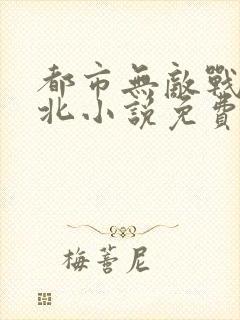 都市無敵戰
北小說免費
梅薈尼